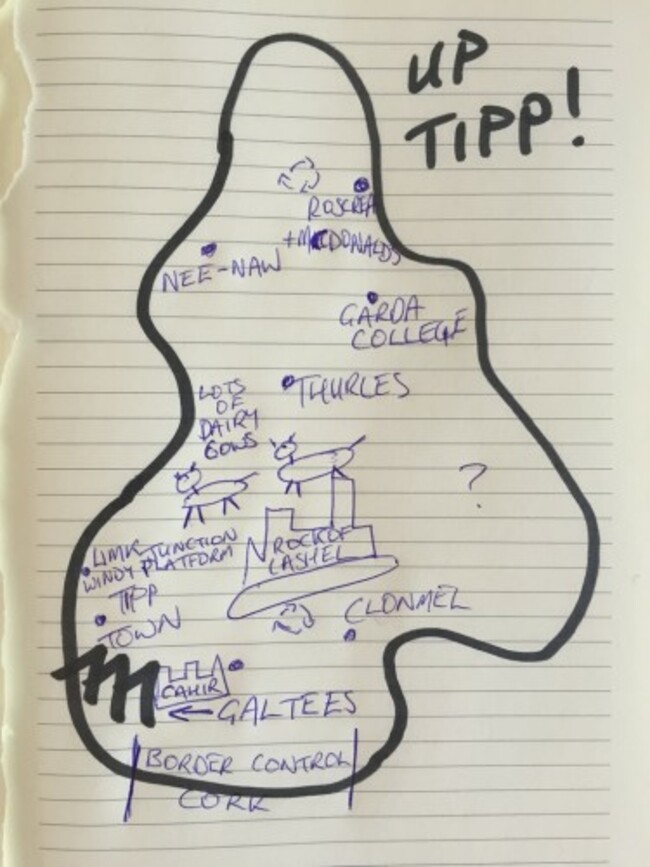 UP
TIPP!
ROSCREA
+MCDONALDS
NEE-NAW
GARDA
COLLEGE
THURLES
LOTS
OF
DAIRY
COWS
?
LIMK JUNCTION
WINDY PLATFORM
ROCK OF
CASHEL
TIPP
TOWN
CLONMEL
CAHIR
GALTEES
BORDER CONTROL
CORK